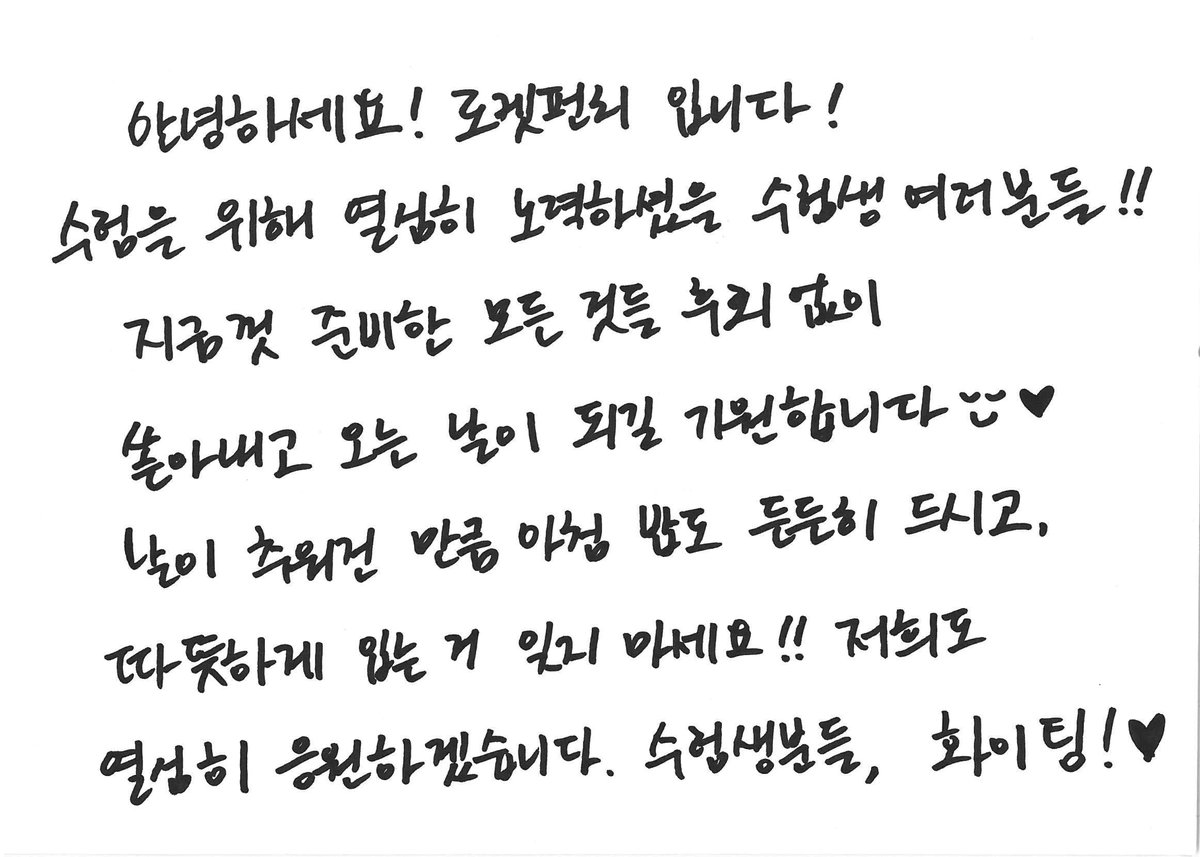 안녕하세요! 로켓펀치 입니다!
수험을 위해 열심히 노력하셨을 수험생 여러분들!!
지금껏 준비한 모든 것들 후회 없이
쏟아내고 오는 날이 되길 기원합니다 ♥
날이 추워진 만큼 아침 밥도 든든히 드시고,
따뜻하게 입는 거 잊지 마세요!! 저희도
열심히 응원하겠습니다. 수험생분들, 화이팅!♥